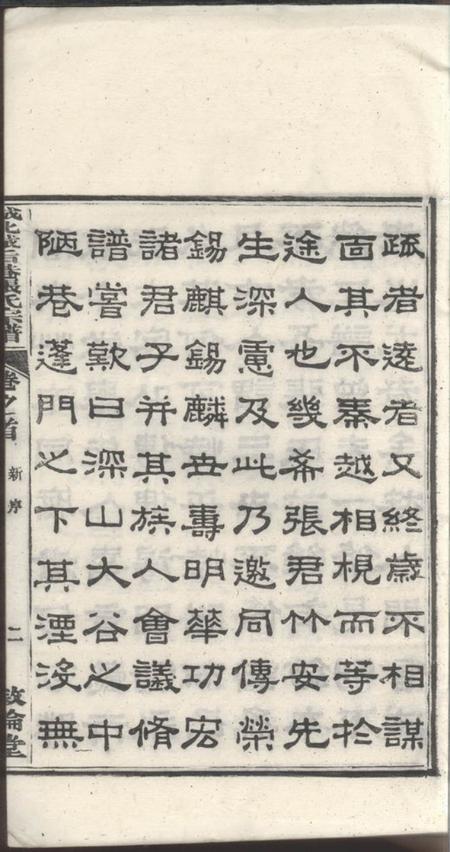 疏者逺者又終歳不相謀
面其不秦越相視而等於
途人也幾希張君竹安先
生深慮及此乃邀同傳榮
錫麒錫麟丗壽明華功宏
諸君子并其族人會議脩
譜嘗歎曰深山大谷之中
陋巷蓬門之下其湮没無
張氏宗譜
卷之首
新序
二
敦倫堂